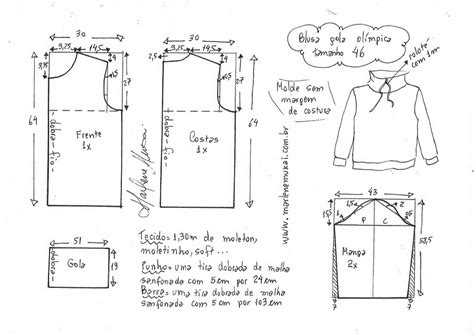 Blusa gola olímpica
tamanho 46
rolotê
com 1m
Molde sem
margem
de costura
30
9,25
14,5
4
9,75
5
27
64
dobra-fio
Frente
1x
30
9,25
14,5
2,5
4
5
27
64
dobra-fio
Costas
1x
Marlene Mukai
www.marlenemukai.com.br
51
dobra
Gola
19
Tecido= 1,30m de moleton,
moletinho, soft...
Punho= uma tira dobrada de malha
sanfonada com 5cm por 24cm
Barra= uma tira dobrada de malha
sanfonada com 5cm por 103cm
43
1,5
2
F
C
Manga
2x
7
7